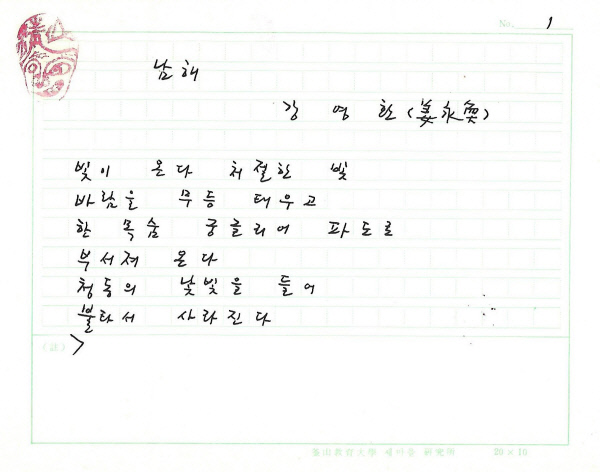 No. 1
남해
강 영 환 (姜永奐)
빛이 온다 처절한 빛
바람을 무등 태우고
한 목숨 궁글리어 파도로
부서져 온다
청동의 낯빛을 들어
불타서 사라진다
(註)
釜山教育大學 국어과 研究所 20 × 10